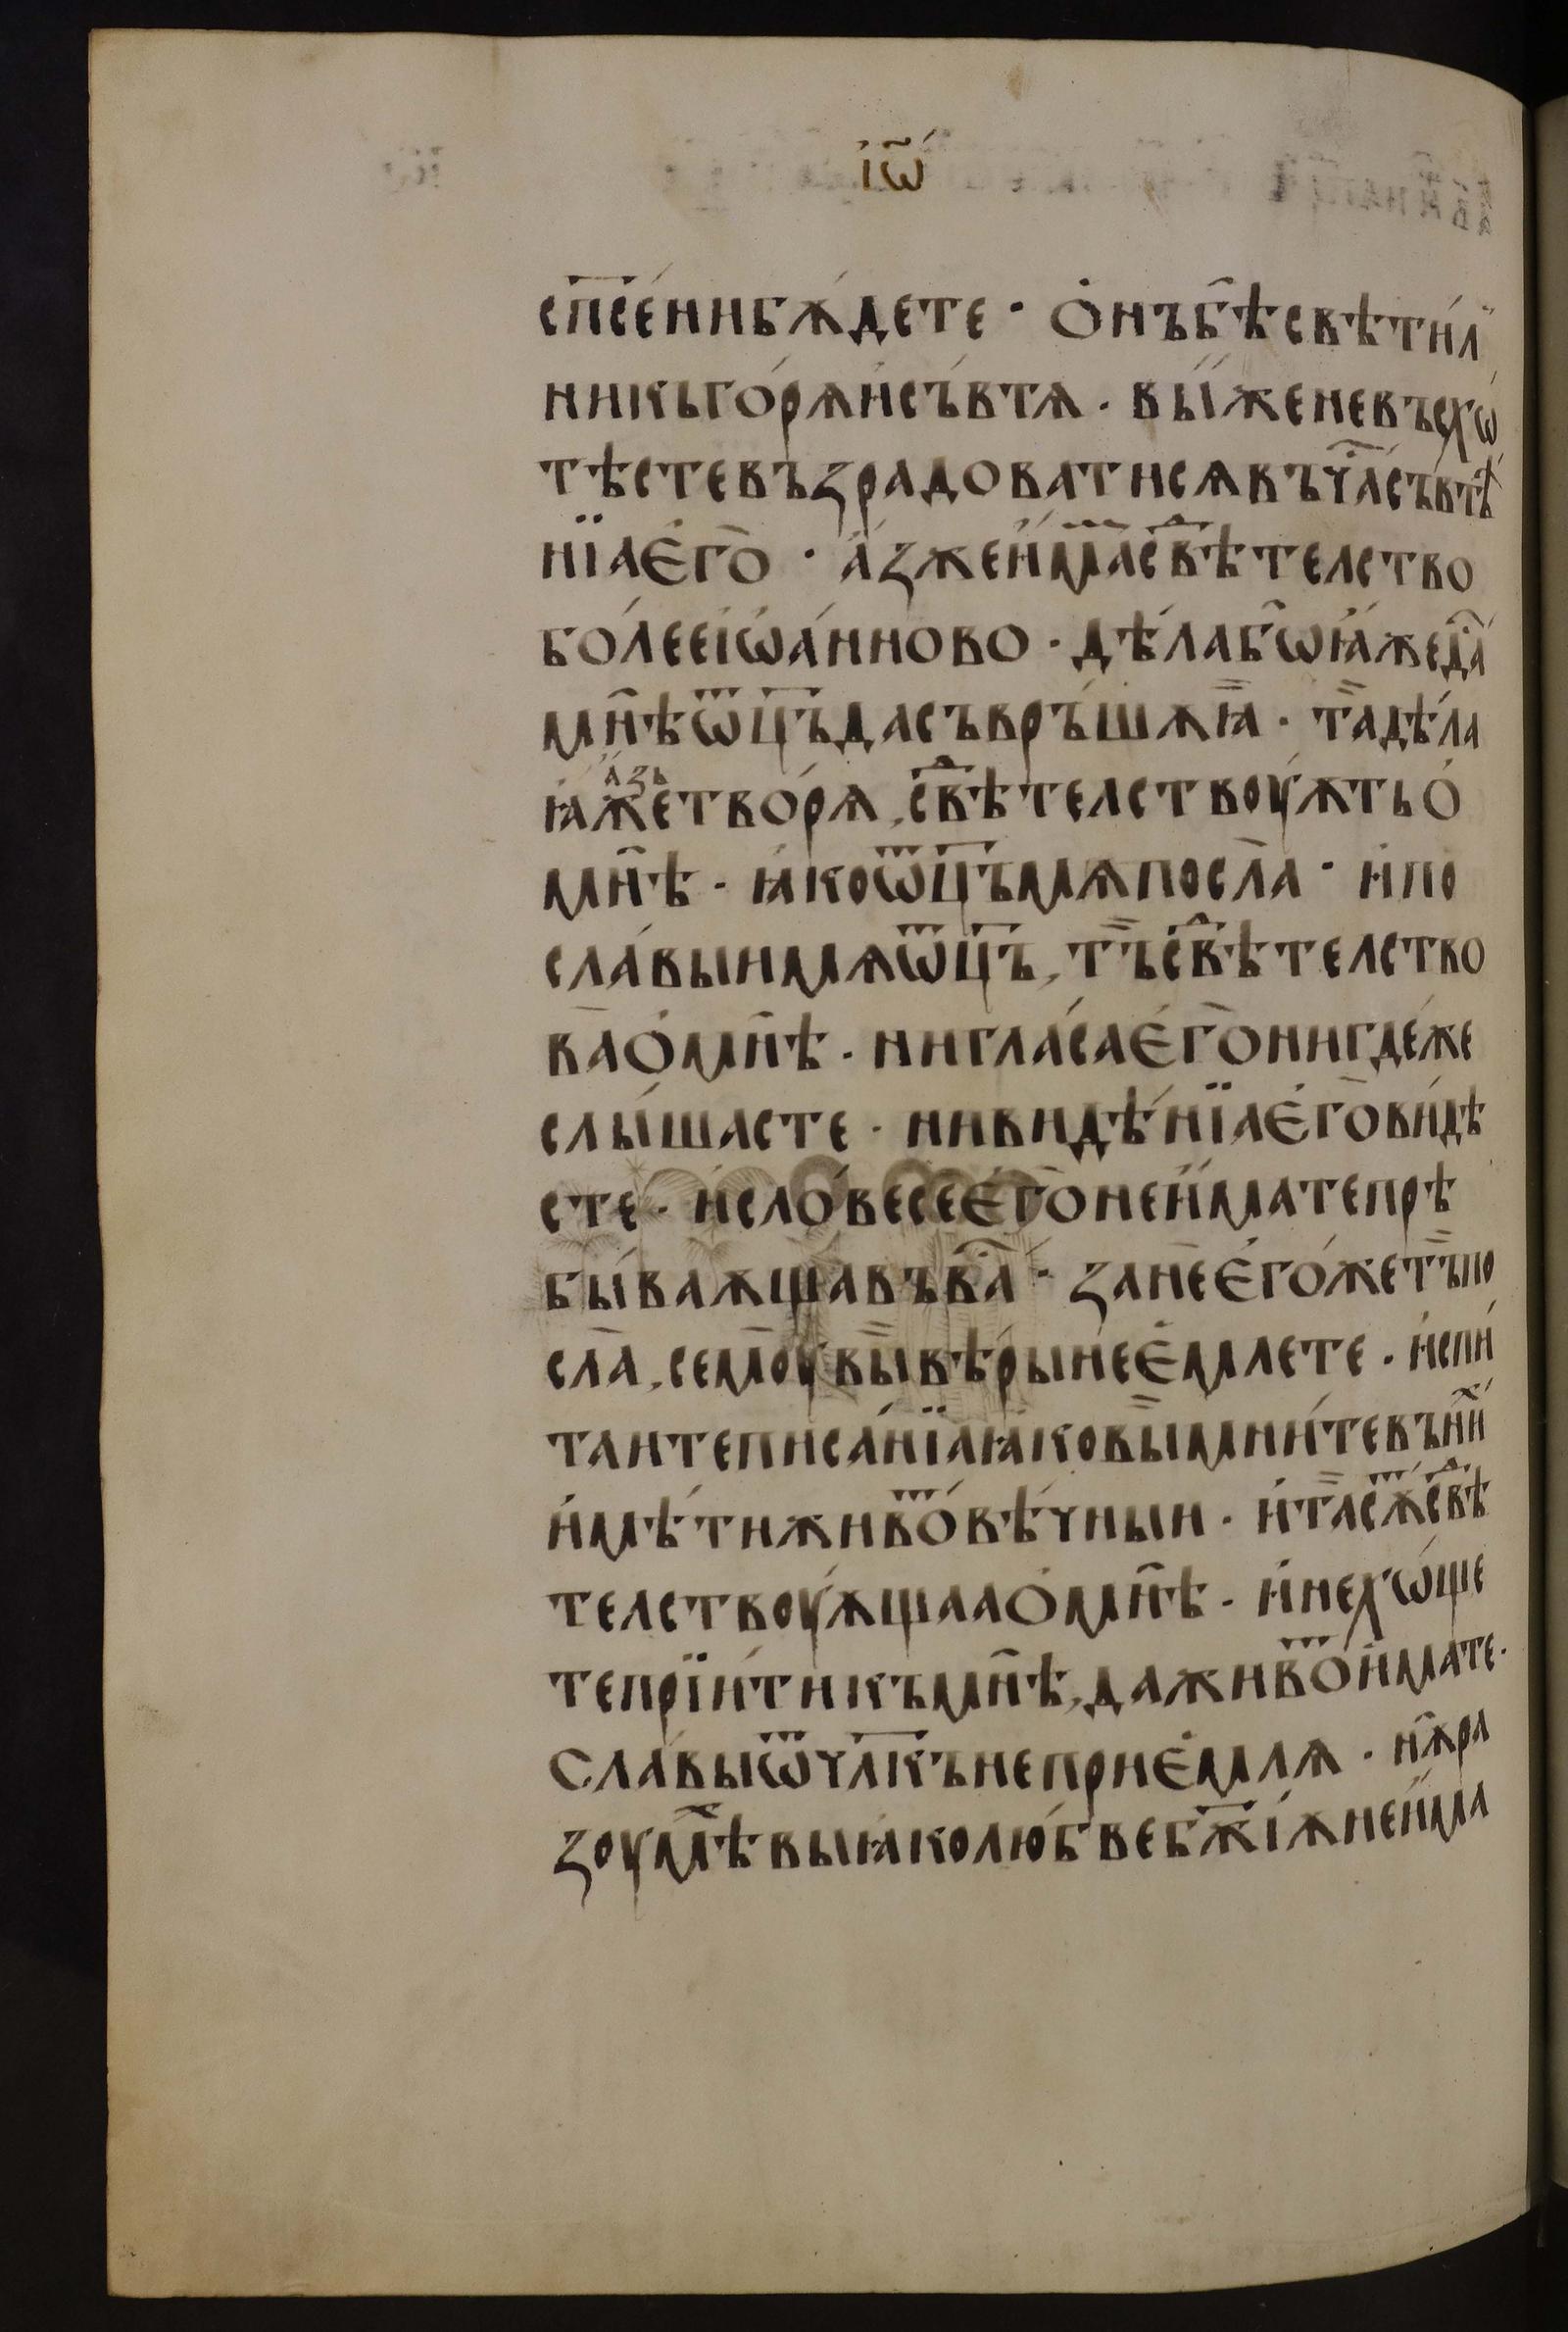 і҆ѡ҃
сп҃се́ни бѫ́дете · о҆нъ б҄ѣ свѣти́л
никь го́рѧ и҆ съ́втѧ · вы́ же не въсхѡ́
тѣсте възрадоватисѧ въ ч҃а́съ втѣ́
нїа є҆го̀ · а҆́з же и҆́ма̅ с҃вѣтелство
бо́лее і҆ѡа́нново · дѣ́ла б҄ѡ ꙗ҆́же да̑
мн҄ѣ ѿц҃ъ да съвръ́шѫ ꙗ̀ · та̏ дѣ́ла
ꙗ҆́же а҆́зь творѧ́, с҃вѣтелствоу́ѫть о҆́
мн҄ѣ · ꙗ҆́ко ѿц҃ъ мѧ посла̀ · и҆ по
сла́выи мѧ ѿц҃ъ, тъ̏ с҃вѣтелство
ва̀ о҆ мн҄ѣ · ни гла́са є҆го̀ нигде́же
слы́шасте · ни видѣ́нїа є҆го̀ ви́дѣ
сте · и҆ сло́весе є҆го̀ не и҆́мате прѣ
бы́ваѫща въ ва̑ · занѐ є҆го́же тъ̏ по
сла̀, семо̀у вы̏ вѣ́ры не є҆́млете · и҆спи́
таите писа́нїа ꙗ҆́ко вы̏ мни́те въ ни́
и҆мѣ́ти живо̅ вѣ́чныи · и҆ та̏ сѫ̅ с҃вѣ
телствоу́ѫщаа о҆ мн҄ѣ · и҆ не хѡ́ще
те прїи́ти къ мн҄ѣ, да живо̅ и҆́мате ·
Сла́вы ѿ ч҃лкъ не прие́млѧ · нѫ̑ ра
зоумѣ̅ вы ꙗ҆́ко лю́бве б҃жїѫ не и҆́ма